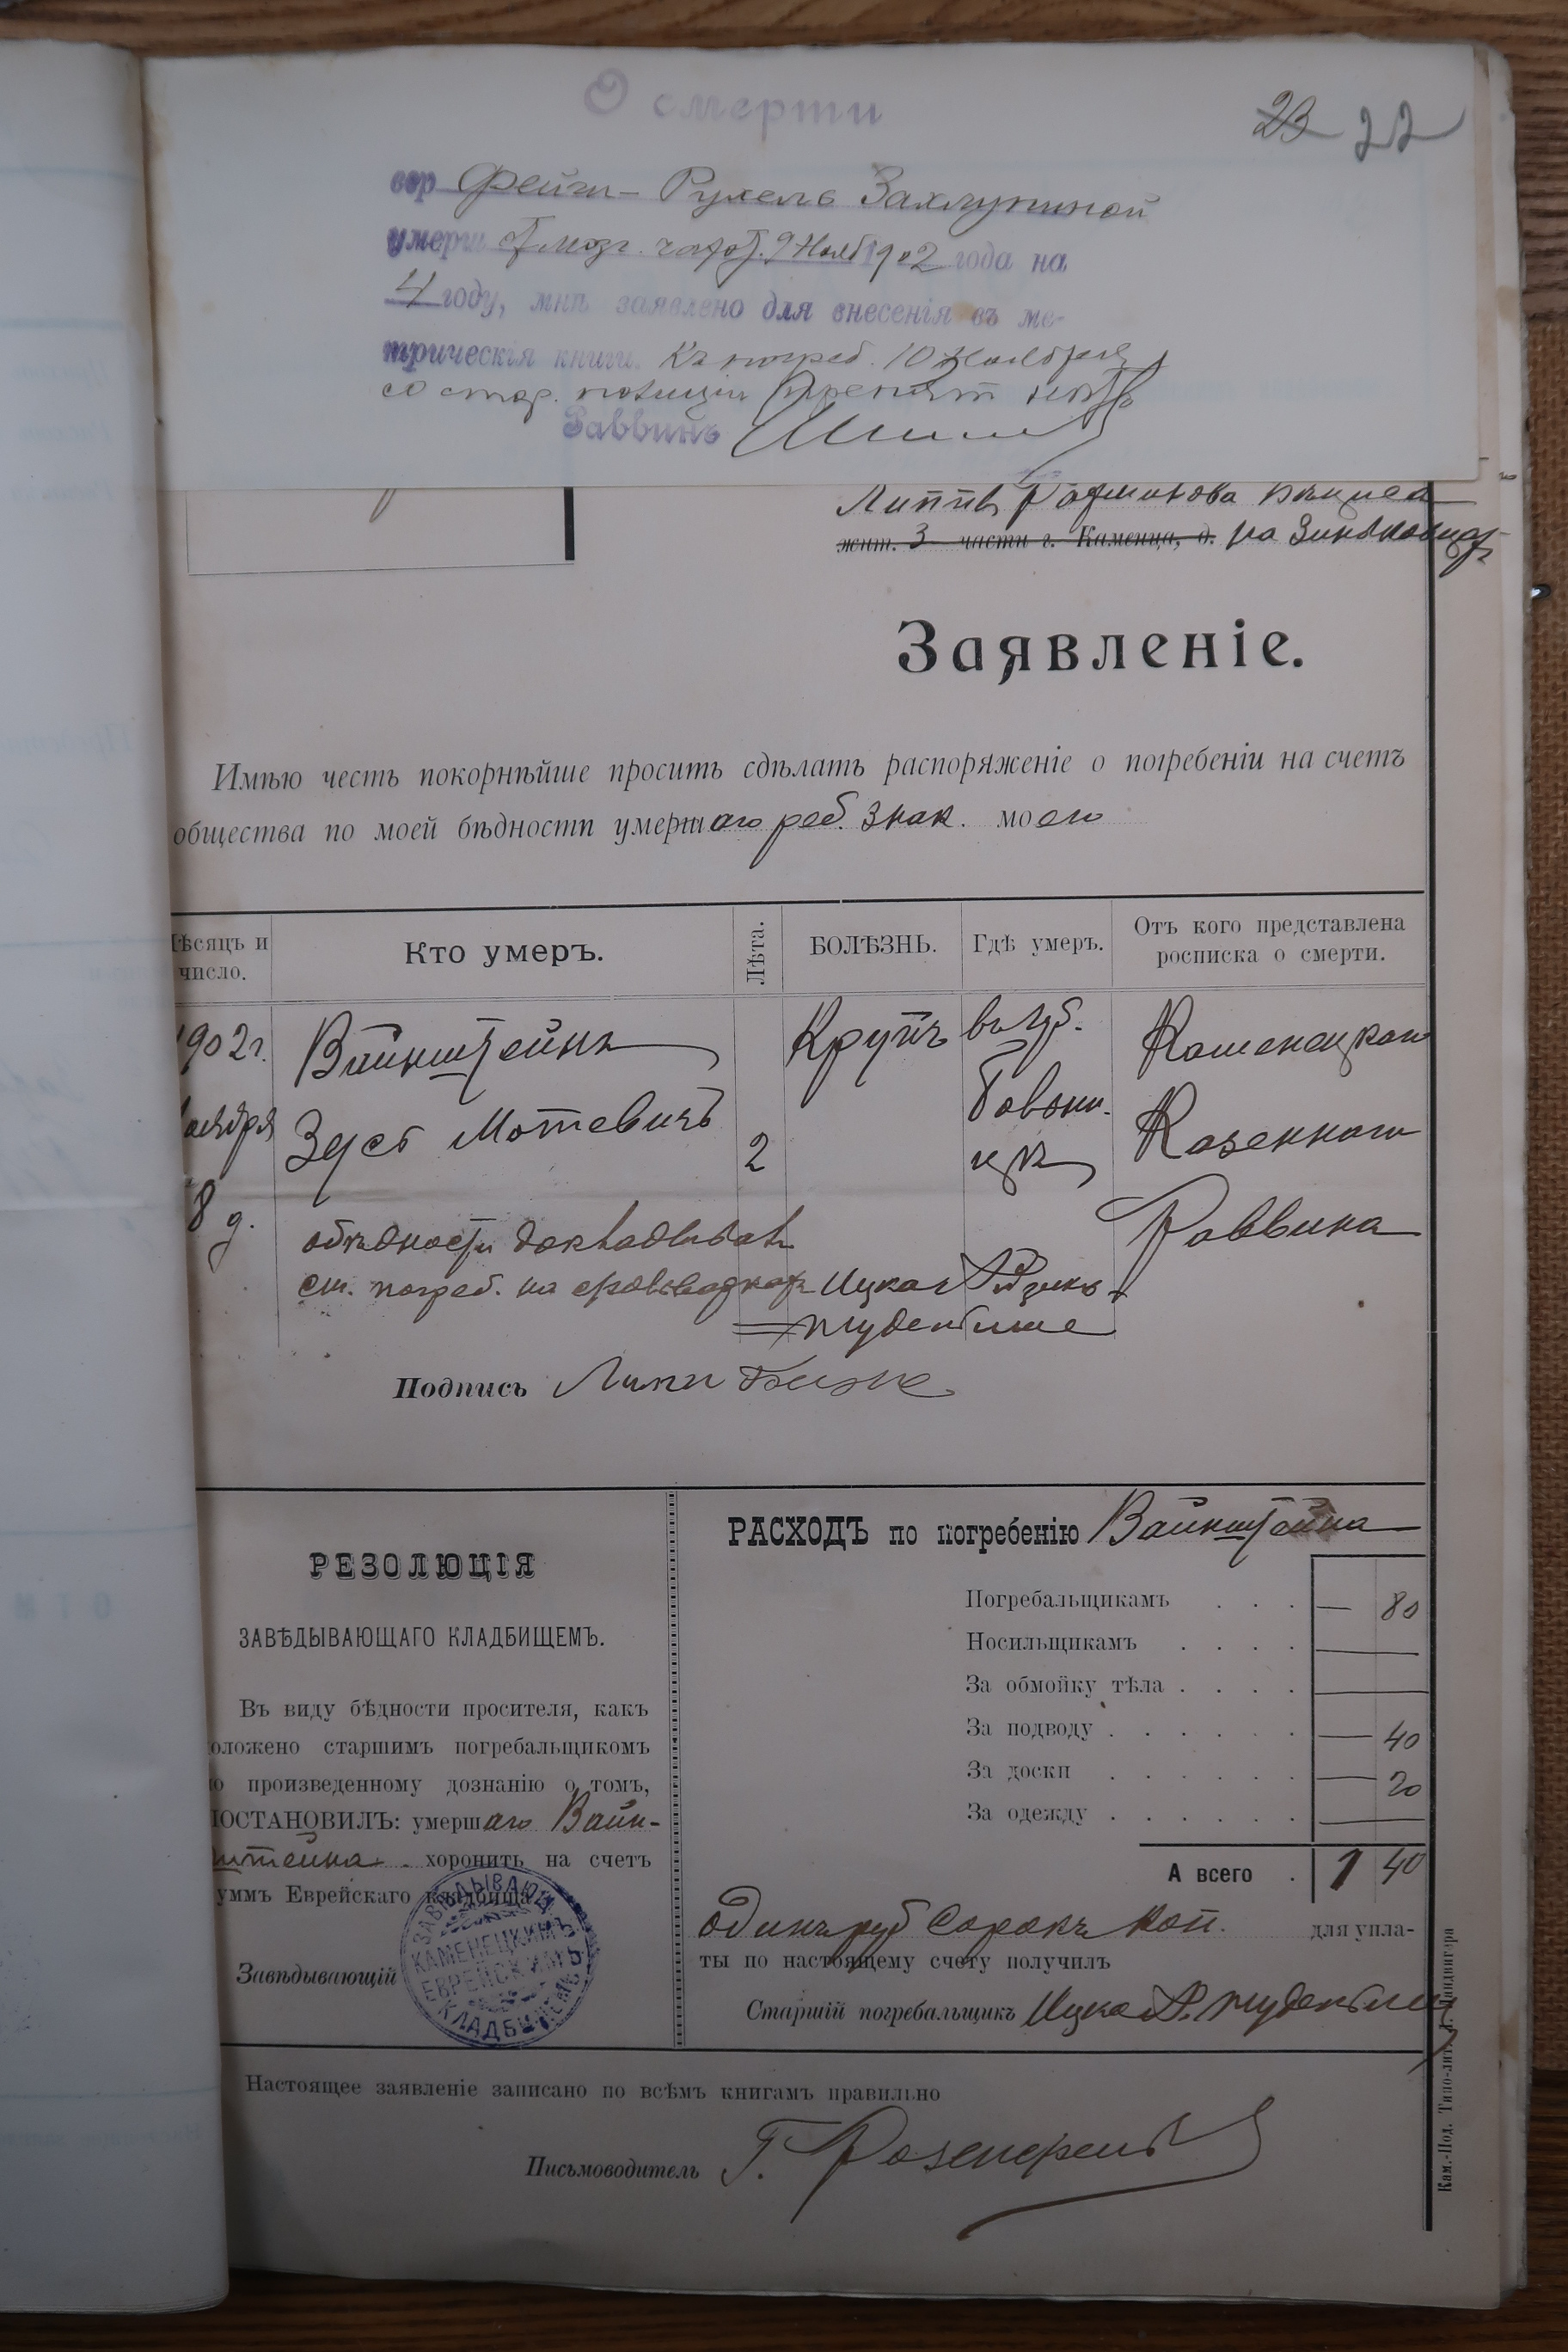 О смерти
23 22
евр Фейги-Рухель Захлупиной
умерш 9 Нояб 1902 года на
4 году, мнѣ заявлено для внесенія въ ме-
трическія книги. Къ погреб. 10 Ноября
со стор. полиціи препят нѣтъ
Раввинъ
Липы
жит. 3 части г. Каменца, д. на Зиньковцах
Заявленіе.
Имѣю честь покорнѣйше просить сдѣлать распоряженіе о погребеніи на счетъ
общества по моей бѣдности умершаго реб. знак. моего
ѣсяцъ и число.
Кто умеръ.
Лѣта.
БОЛѢЗНЬ.
Гдѣ умеръ.
Отъ кого представлена росписка о смерти.
1902 г. Вайнштейнъ Крупъ Каменецкаго
ноября Зусь Мотевичъ 2 Казеннаго
8 д. Раввина
о бѣдности докладывалъ
ст. погреб. на Ицко
Подпись
РЕЗОЛЮЦІЯ
ЗАВѢДЫВАЮЩАГО КЛАДБИЩЕМЪ.
Въ виду бѣдности просителя, какъ
оложено старшимъ погребальщикомъ
о произведенному дознанію о томъ,
ПОСТАНОВИЛЪ: умершаго Вайн-
штейна хоронить на счетъ
уммъ Еврейскаго кладбища
Завѣдывающій
ЗАВѢДЫВАЮЩ
КАМЕНЕЦКИМЪ
ЕВРЕЙСКИМЪ
КЛАДБИЩЕМЪ
РАСХОДЪ по погребенію Вайнштейна
Погребальщикамъ . . . — 80
Носильщикамъ . . . . —
За обмойку тѣла . . . . —
За подводу . . . . . . — 40
За доски . . . . . . — 20
За одежду . . . . . . —
А всего . 1 40
Одинъ руб сорокъ коп. для упла-
ты по настоящему счету получилъ
Старшій погребальщикъ Ицко
Настоящее заявленіе записано по всѣмъ книгамъ правильно
Письмоводитель Г.
Кам.-Под. Типо-лит.